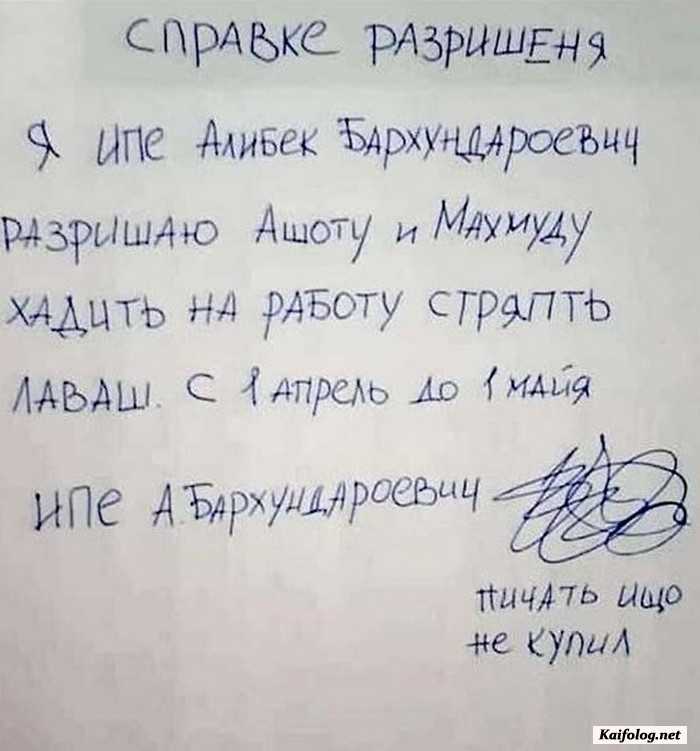 СПРАВКЕ РАЗРИШЕНЯ
Я ИПЕ АЛИБЕК БАРХУНДАРОЕВИЧ
РАЗРИШАЮ АШОТУ И МАХМУДУ
ХАДИТЬ НА РАБОТУ СТРЯПТЬ
ЛАВАШ. С 1 АПРЕЛЬ ДО 1 МАЙЯ
ИПЕ А.БАРХУНДАРОЕВИЧ
ПИЧАТЬ ИЩО
НЕ КУПИЛ
Kaifolog.net